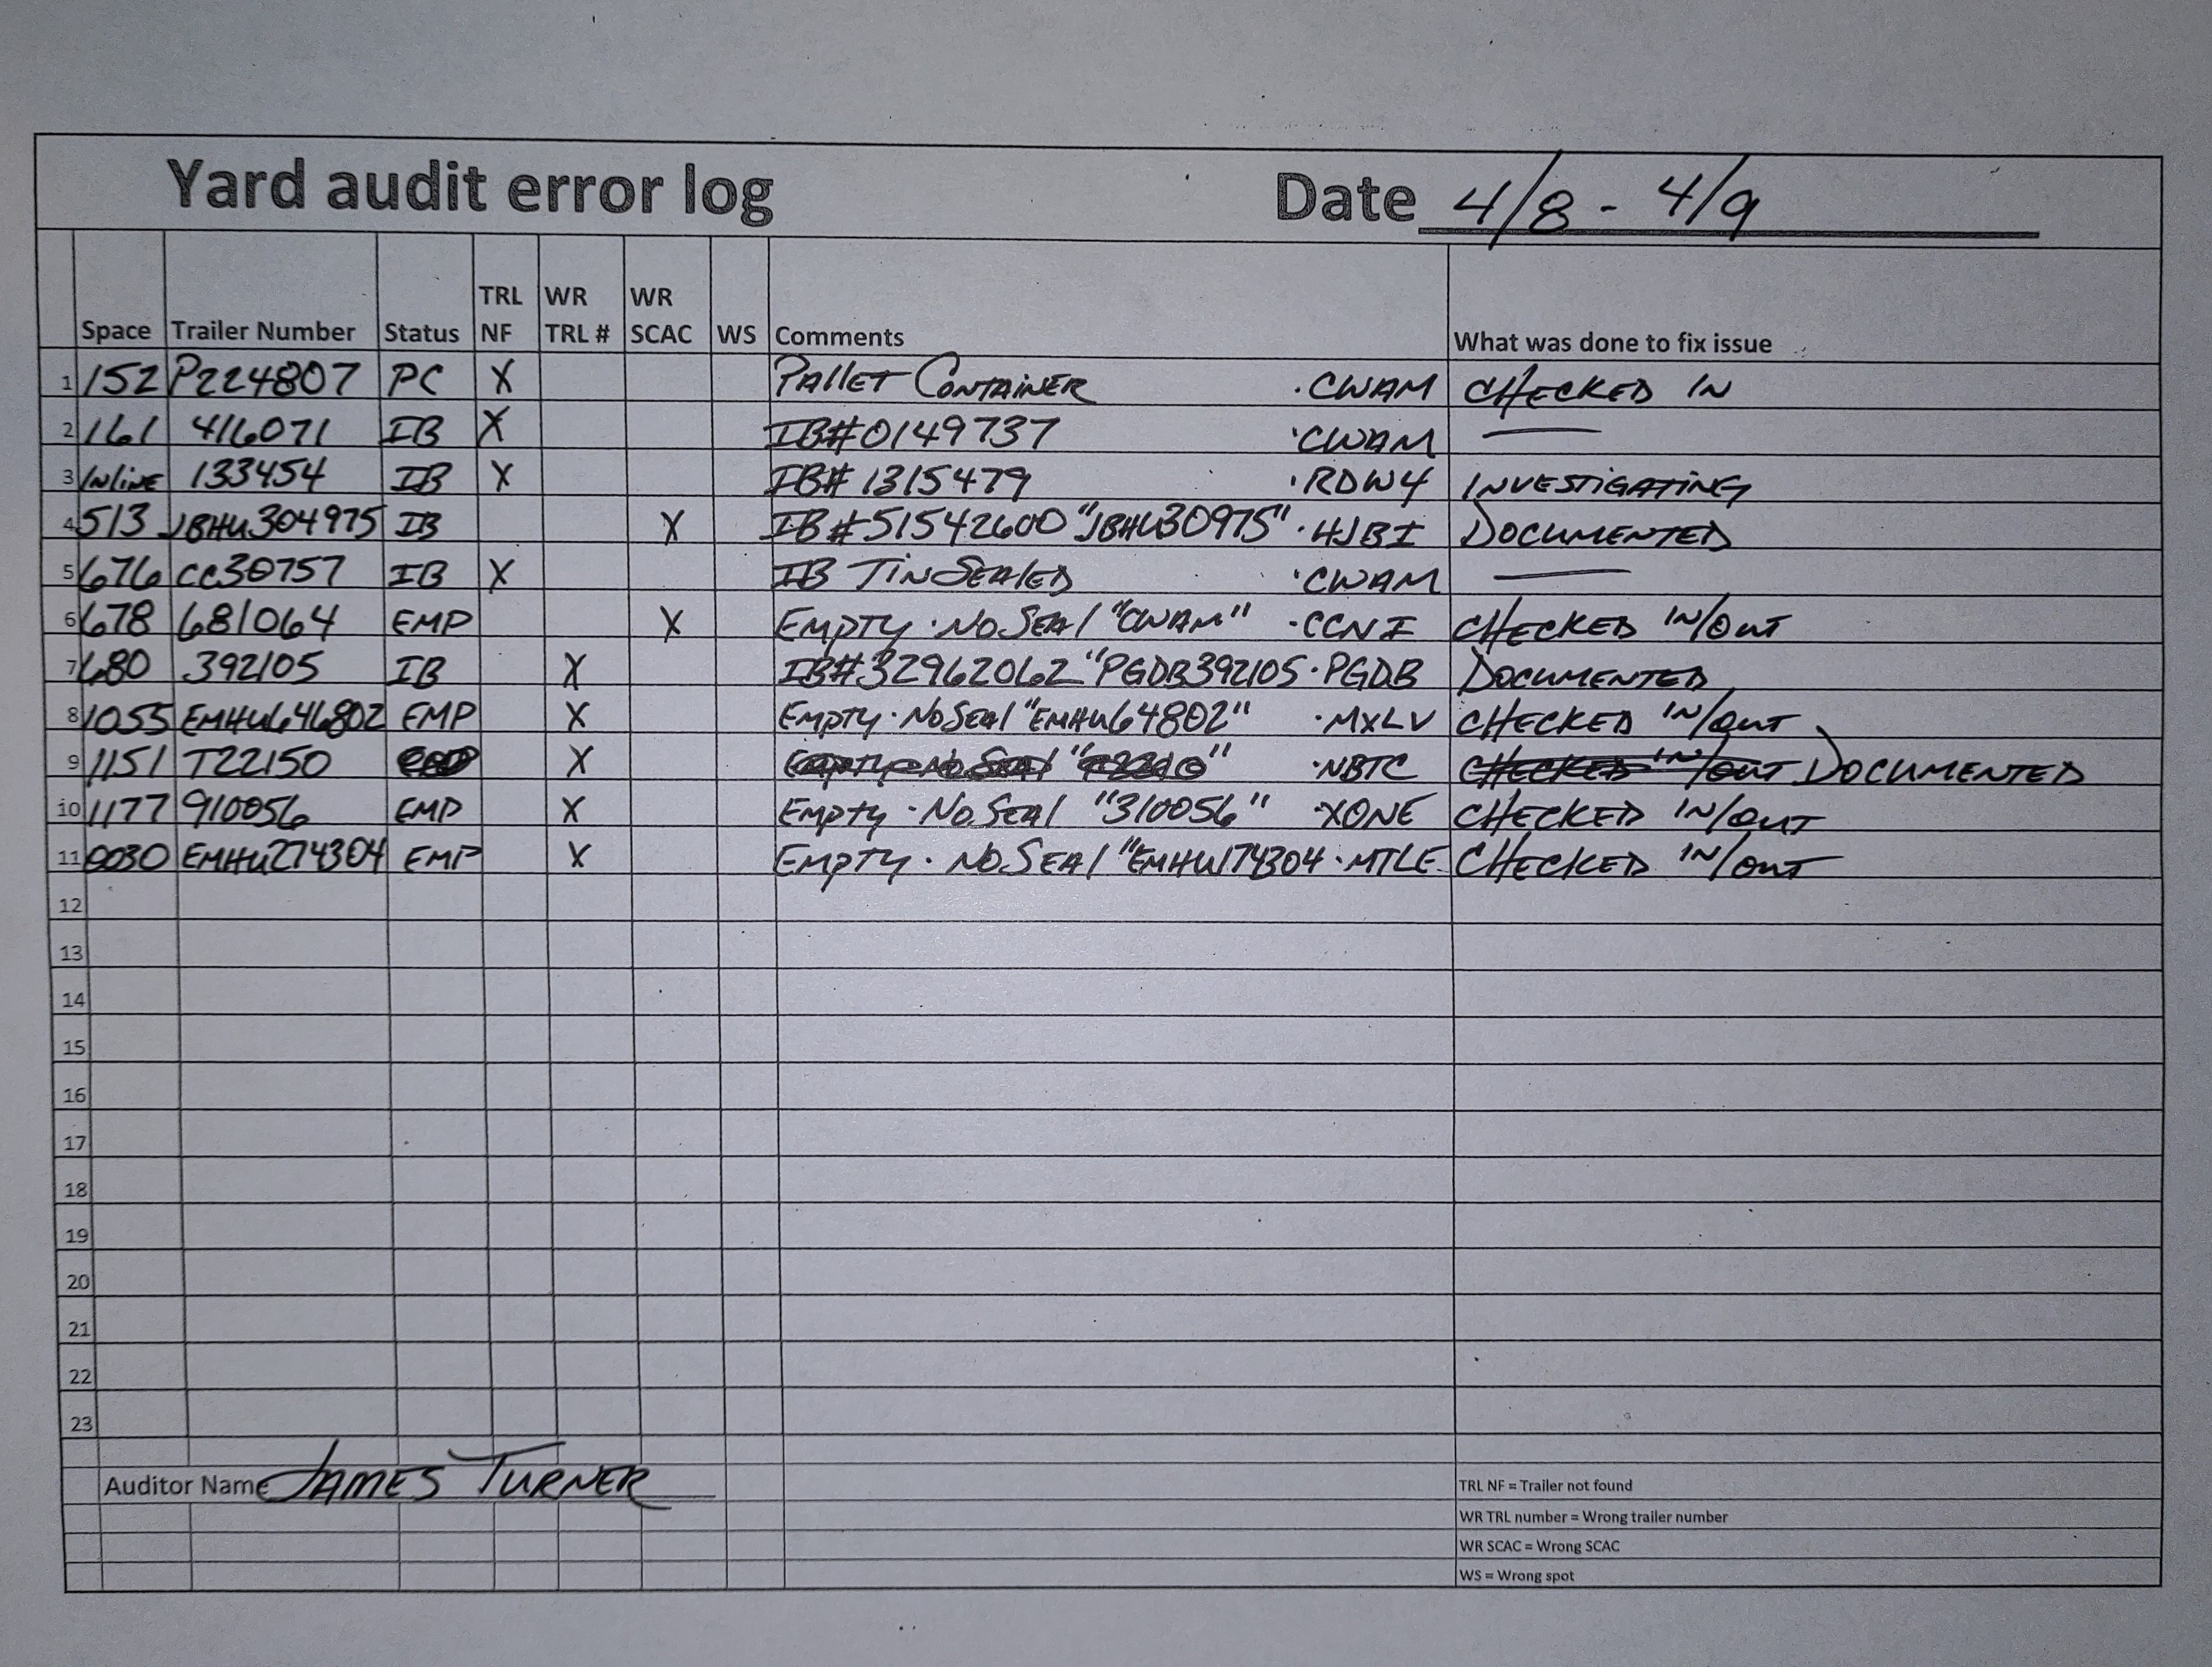 Yard audit error log Date 4/8 - 4/9
Space Trailer Number Status TRL NF WR TRL # WR SCAC WS Comments What was done to fix issue
1 152 P224807 PC X PALLET CONTAINER ·CWAM CHECKED IN
2 161 416071 IB X IB#0149737 ·CWAM —
3 INLINE 133454 IB X IB# 1315479 ·RDWY INVESTIGATING
4 513 JBHU304975 IB X IB#51542600 "JBHU30975" ·HJBI DOCUMENTED
5 676 CC30757 IB X IB TIN SEALED ·CWAM —
6 678 681064 EMP X EMPTY · NO SEAL "CWAM" ·CCNI CHECKED IN/OUT
7 680 392105 IB X IB#32962062 "PGDB392105 ·PGDB DOCUMENTED
8 1055 EMHU646802 EMP X EMPTY · NO SEAL "EMHU64802" ·MXLV CHECKED IN/OUT
9 1151 T22150 X EMPTY · NO SEAL ·NBTC CHECKED IN/OUT DOCUMENTED
10 1177 910056 EMP X EMPTY · NO SEAL "310056" ·XONE CHECKED IN/OUT
11 0030 EMHU274304 EMP X EMPTY · NO SEAL "EMHU174304 ·MTLE CHECKED IN/OUT
12
13
14
15
16
17
18
19
20
21
22
23
Auditor Name JAMES TURNER
TRL NF = Trailer not found
WR TRL number = Wrong trailer number
WR SCAC = Wrong SCAC
WS = Wrong spot